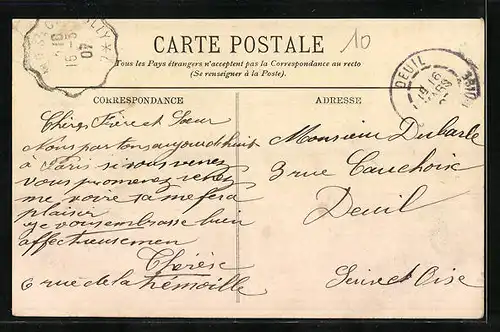 CARTE POSTALE
10
Tous les Pays étrangers n'acceptent pas la Correspondance au recto
(Se renseigner à la Poste).
CORRESPONDANCE
Chères Frère et Sœur
Nous partons aujourd'huit
à Paris si vous venez
vous promenez venez
me voire sa me fera
plaisir
je vous embrasse bien
affectueusemen
Thérèse
6 rue de la trémoille
ADRESSE
Monsieur Dubarle
3 rue Cauchoix
Deuil
Seine et Oise
15-3
07
DEUIL
16